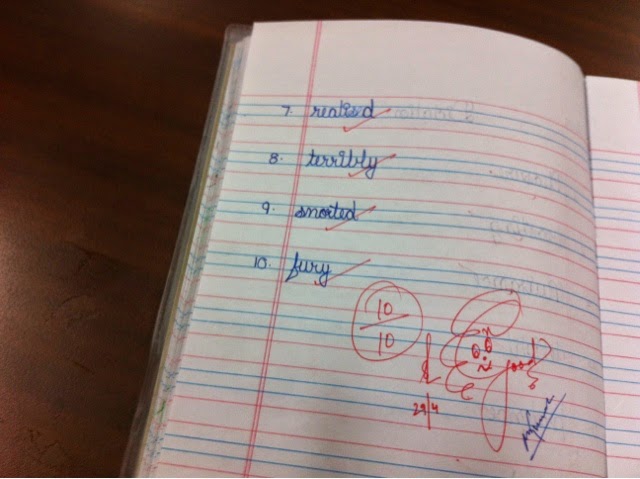 7. realised
8. terribly
9. snorted
10. fury
10
10
good
29/4